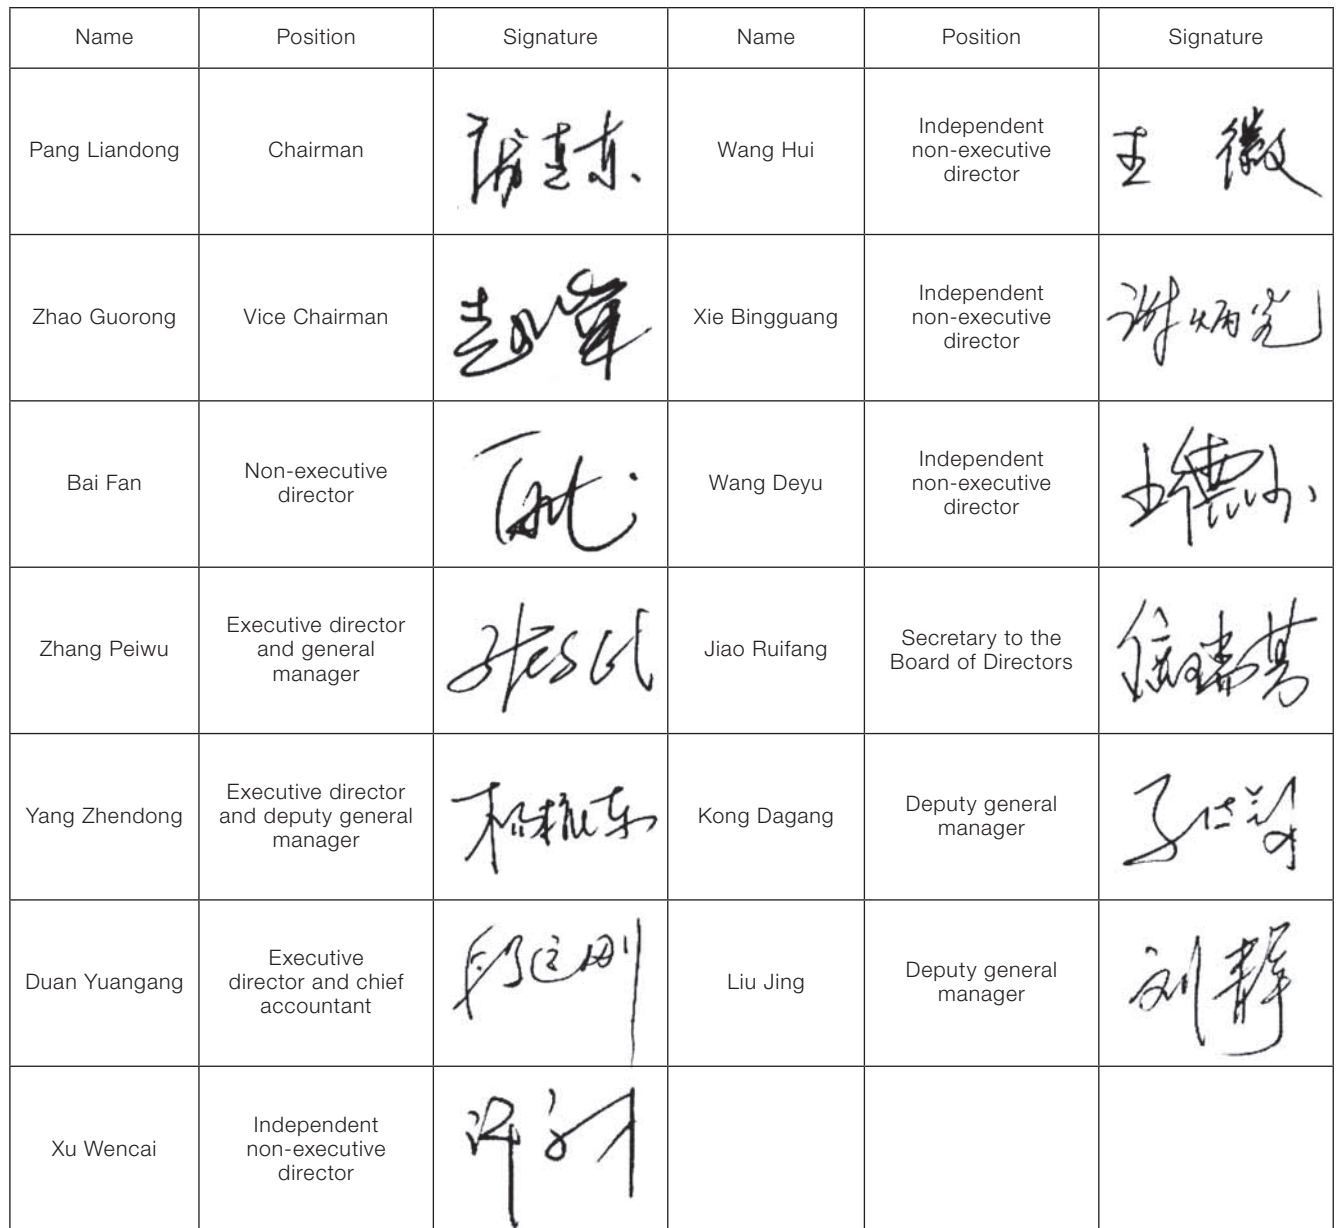 Name Position Signature Name Position Signature
Pang Liandong Chairman Wang Hui Independent
non-executive
director 王 徽
Zhao Guorong Vice Chairman Xie Bingguang Independent
non-executive
director 谢炳光
Bai Fan Non-executive
director Wang Deyu Independent
non-executive
director
Zhang Peiwu Executive director
and general
manager Jiao Ruifang Secretary to the
Board of Directors
Yang Zhendong Executive director
and deputy general
manager 杨振东 Kong Dagang Deputy general
manager
Duan Yuangang Executive
director and chief
accountant Liu Jing Deputy general
manager 刘静
Xu Wencai Independent
non-executive
director